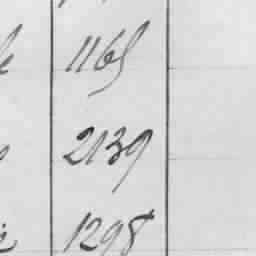 1165
2139
1298